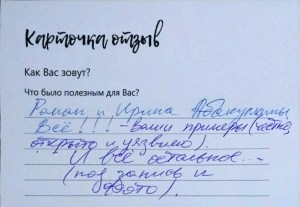 Карточка отзыв
Как Вас зовут?
Что было полезным для Вас?
Роман и Ирина
Всё!!! – Ваши примеры (честно,
открыто и уязвимо).
И всё остальное...
(под запись и
фото).